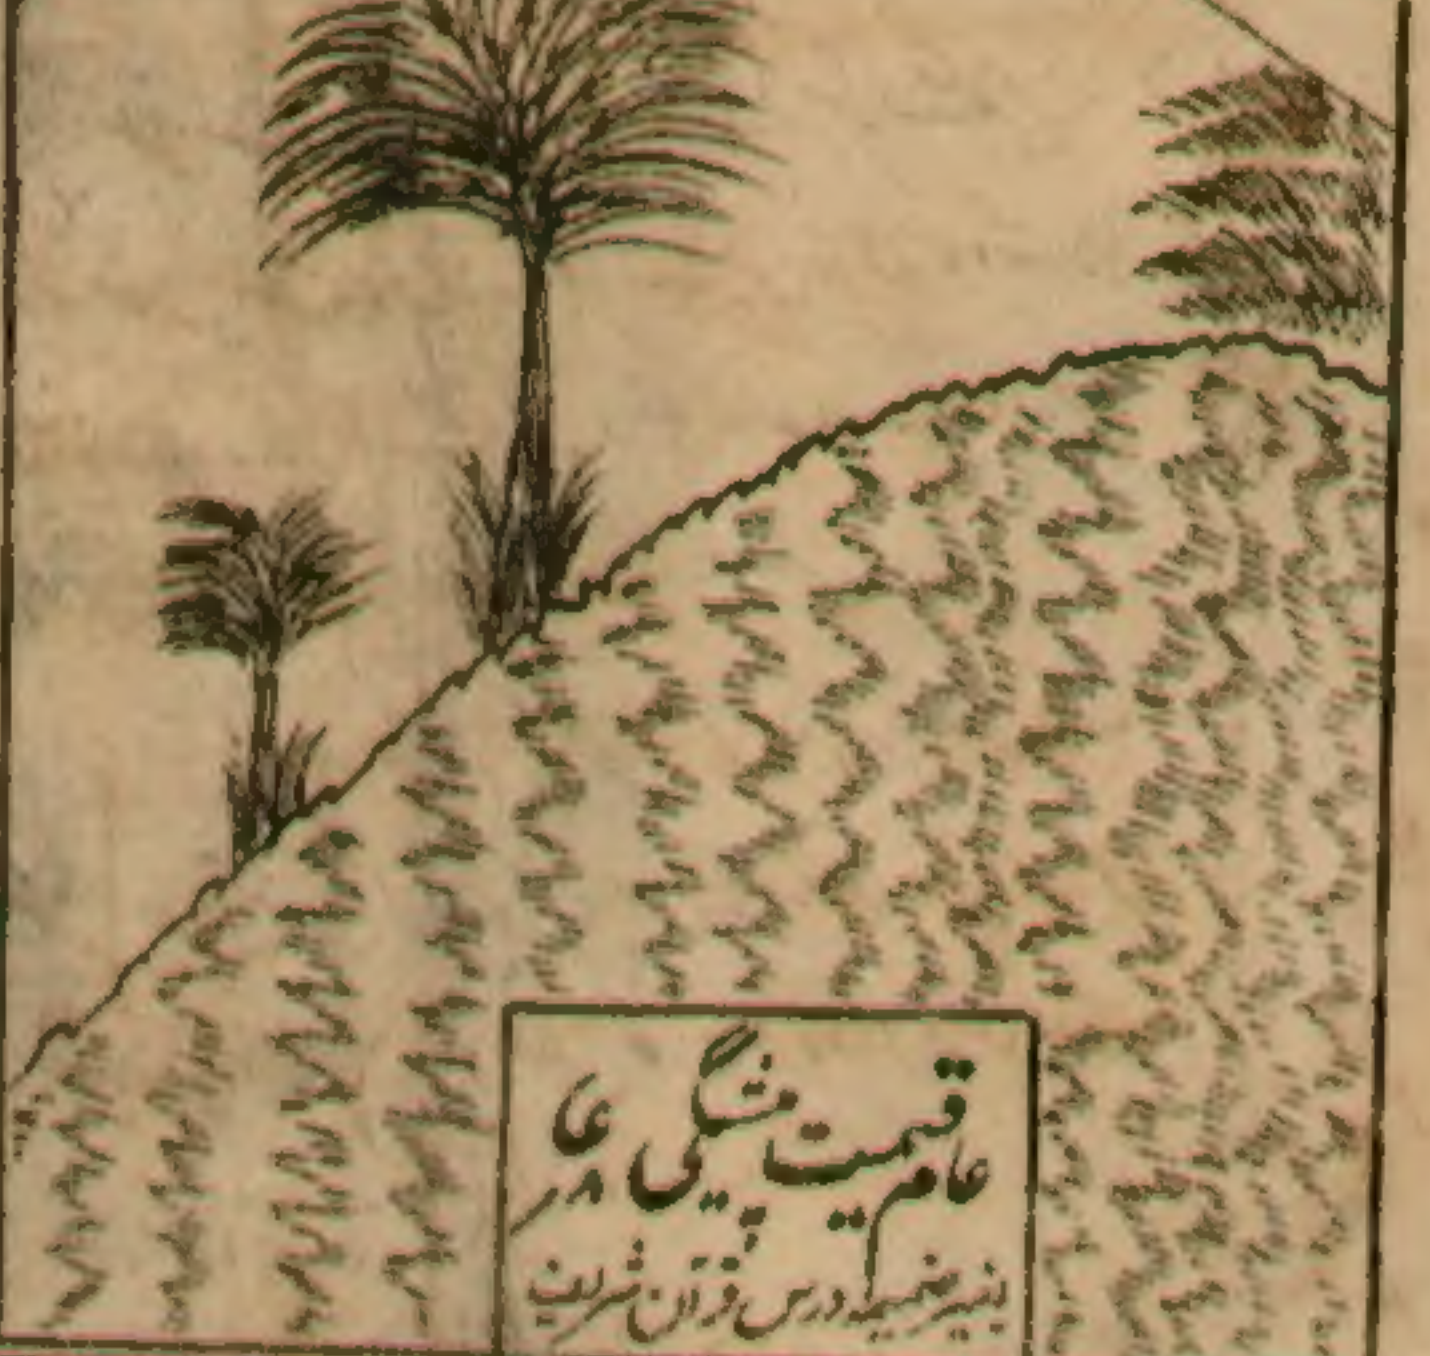 عام قیمت پیشگی عا ۸ر
بغیر ضمیمہ درس قرآن شریف